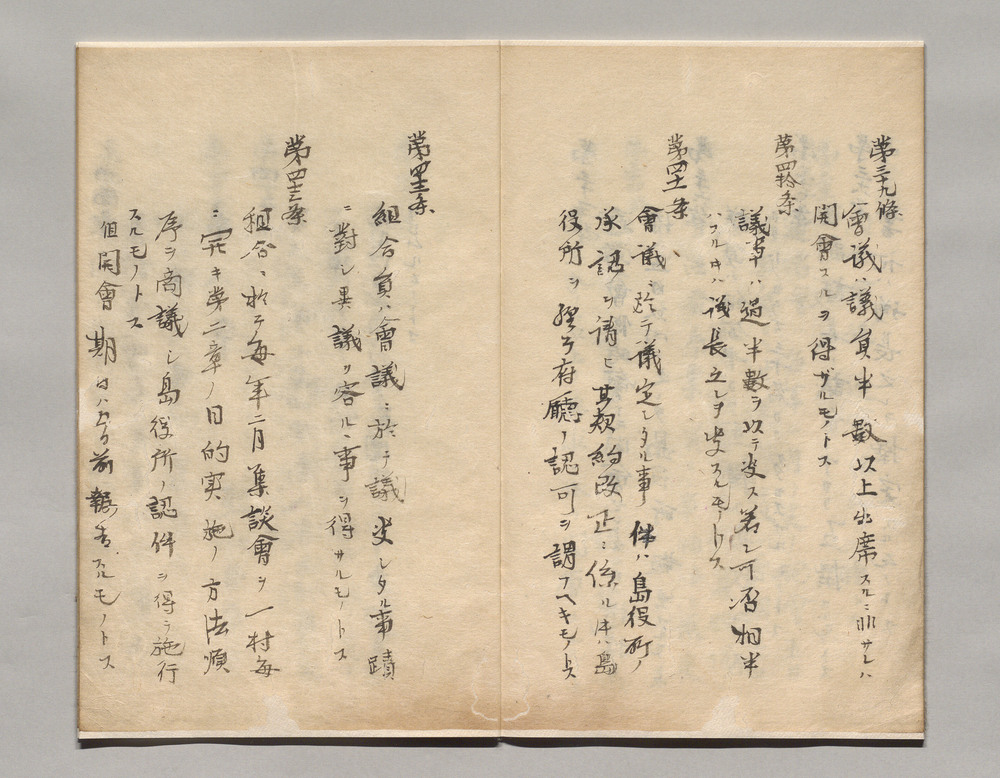 第三十九條
會議ハ議員半數以上出席スルニ非サレハ
開會スルヲ得ザルモノトス
第四拾条
議事ハ過半數ヲ以テ决ス若シ可否相半
ハスルキハ議長之レヲ决スルモノトス
第四十一条
會議ニ於テ議定シタル事件ハ島役所ノ
承認ヲ請ヒ其規約改正ニ係ル件ハ島
役所ヲ經テ府廳ノ認可ヲ謂フヘキモノトス
第四十二条
組合員ハ會議ニ於テ議决シタル事蹟
ニ對シ異議ヲ容ルヽ事ヲ得サルモノトス
第四十三条
組合ニ於テ毎年二月集談會ヲ一村毎
ニ開キ第二章ノ目的実施ノ方法順
序ヲ商議シ島役所ノ認件ヲ得テ施行
スルモノトス
但開會期日ハ前報告スルモノトス